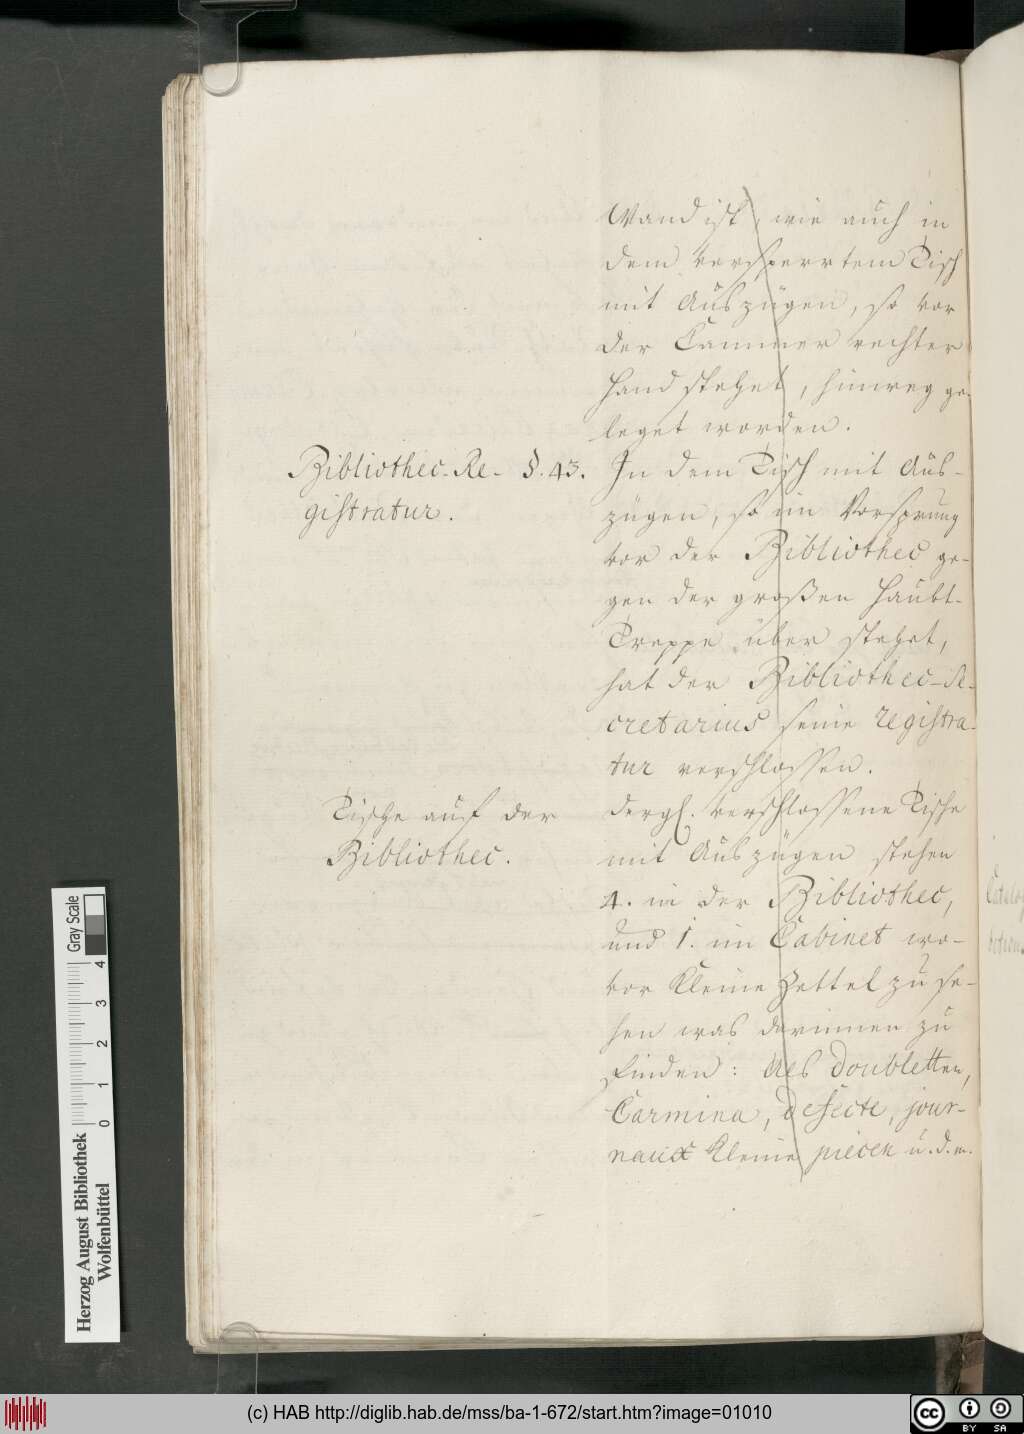 Wand ist, wie auch in
dem versperrtem Tisch
mit Auszügen, so vor
der Cammer rechter
Hand stehet, hinweg ge-
leget worden.
Bibliothec-Re- §. 43. In dem Tisch mit Aus-
gistratur. zügen, so im Vorsprung
vor der Bibliothec ge-
gen der großen Haubt-
Treppe über stehet,
hat der Bibliothec-Se-
cretarius seine registra-
tur verschlossen.
Tische auf der dergl. verschlossene Tische
Bibliothec. mit Auszügen stehen
4. in der Bibliothec,
und 1. im Cabinet wo-
vor kleine Zettel zu se-
hen was darinnen zu
finden: Als doubletten,
Carmina, defecte, jour-
naux kleine piecen u.d.m.
Gray Scale
0 1 2 3 4
Herzog August Bibliothek
Wolfenbüttel
(c) HAB http://diglib.hab.de/mss/ba-1-672/start.htm?image=01010
cc BY SA